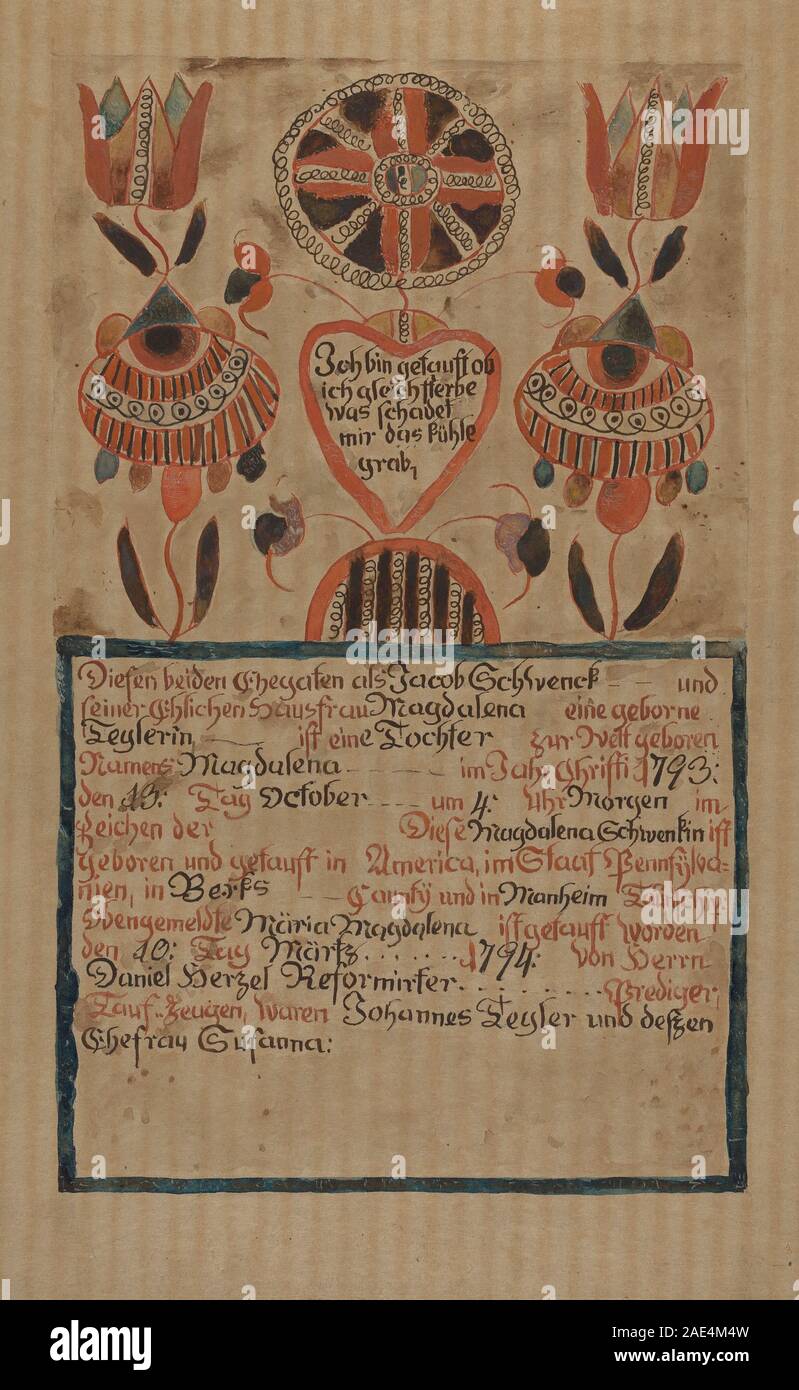 Ich bin getauft ob
ich gleich sterbe
was schadet
mir das kühle
grab,
Diesen beiden Ehegaten als Jacob Schwenck - - und
seiner Ehlichen Hausfrau Magdalena eine geborne
Teylerin, - ist eine Tochter zur Welt geboren
Namens Magdalena - - - - im Jahr Christi 1793:
den 13: Tag October - - - um 4: Uhr Morgen im
Zeichen der Diese Magdalena Schwenkin ist
geboren und getauft in America, im Staat Pennsylva=
nien, in Berks - - County und in Manheim
Obengemeldte Maria Magdalena ist getauft worden
den 10: Tag Märtz . . . . . . . 1794: von Herrn
Daniel Herzel Reformirter . . . . . . . . . Prediger,
Tauf-Zeugen, waren Johannes Teyler und deßen
Ehefrau Susanna:
alamy
Image ID: 2AE4M4W
www.alamy.com